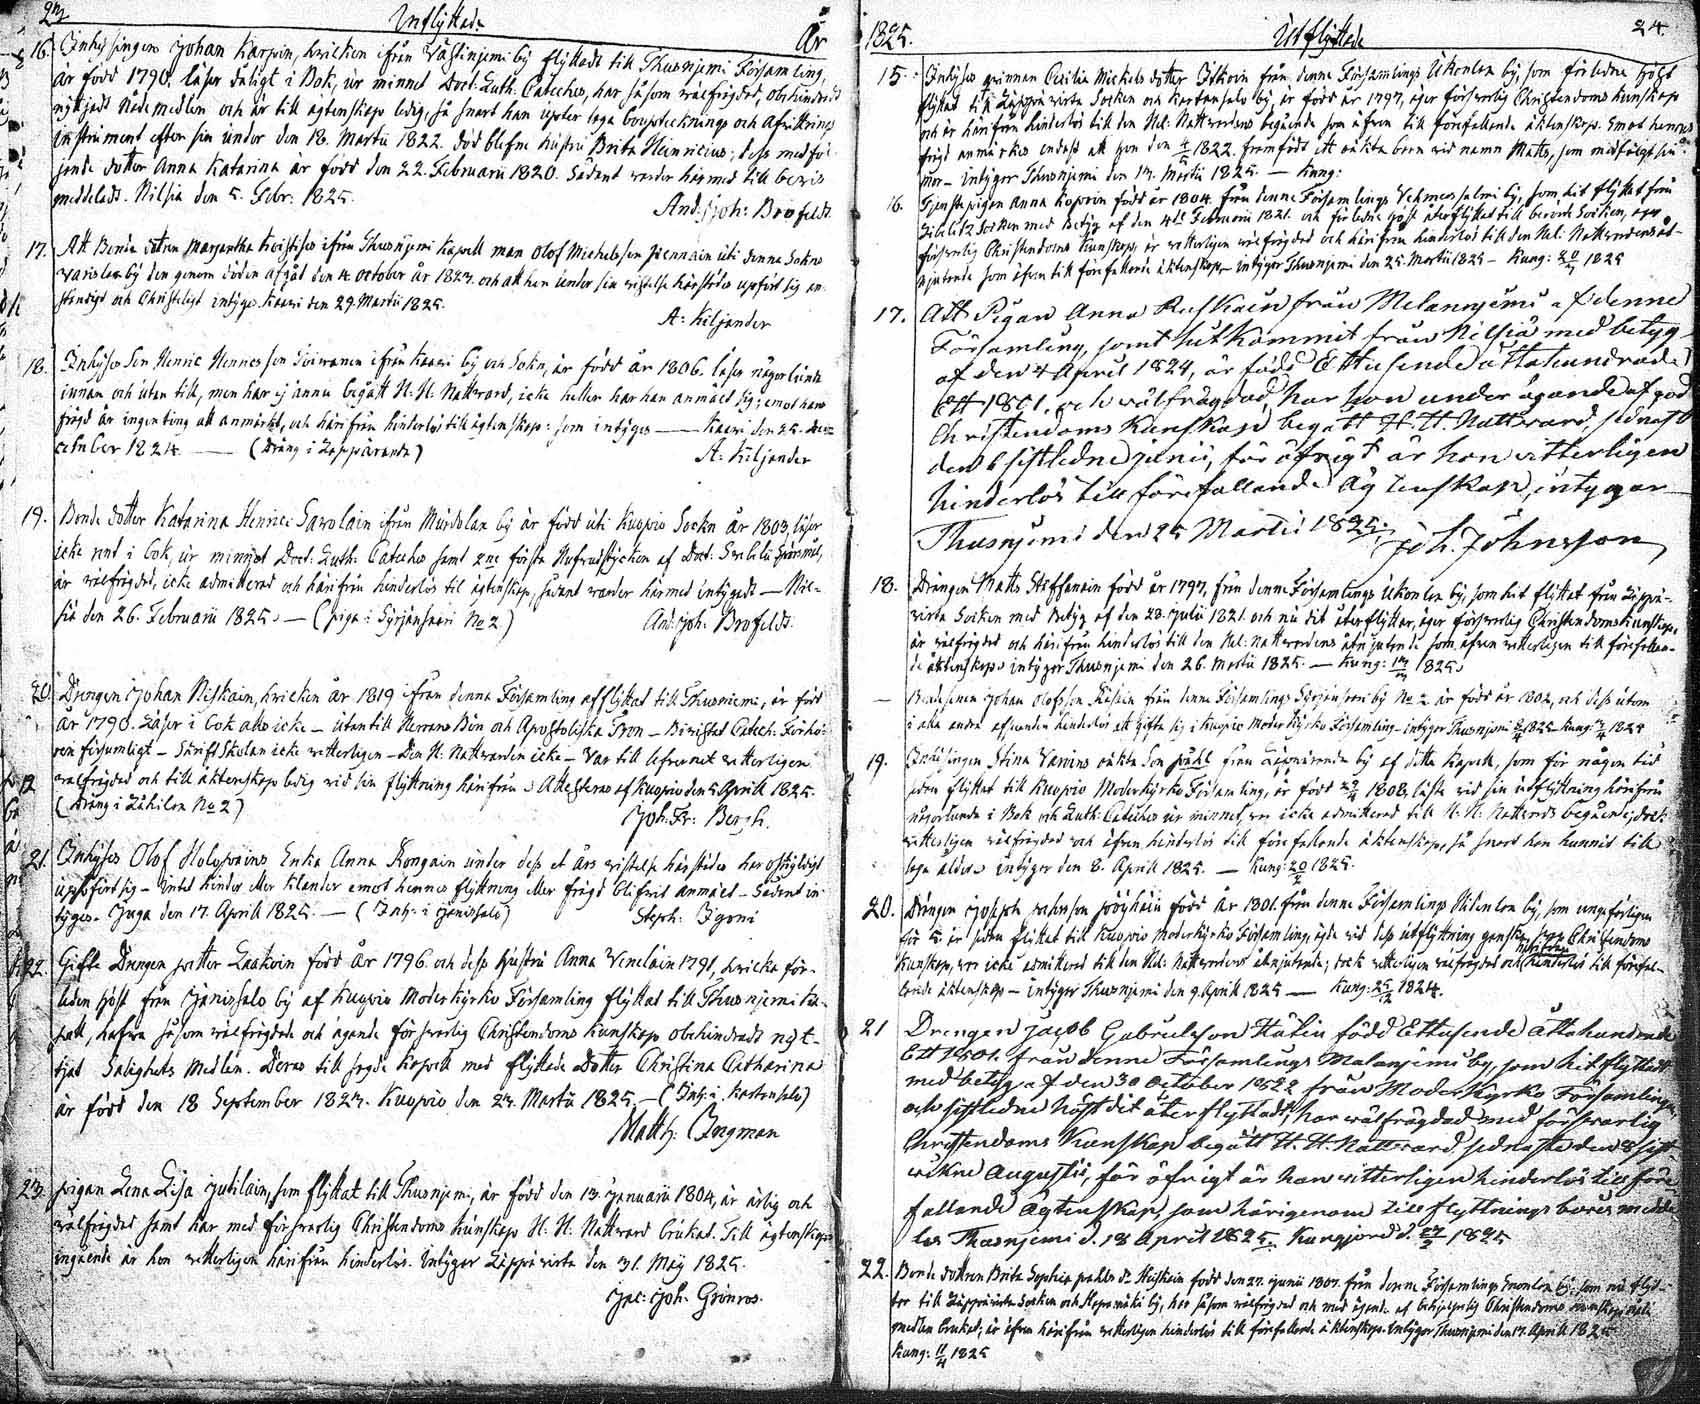 Inflyttade. År
16. Inhysingen Johan Karvin, hvilken ifrån Västinjemi by flyttade till Thusnjemi Församling,
är född 1790. läser dåligt i Bok, ur minnet Doct: Luth: Cateches, har såsom välfrägdad, obehindradt
nyttjadt Nådemedlen och är till ägtenskap ledig, så snart han upter laga Bouptecknings och Afvittrings
Instrument efter sin under den 18. Martii 1822. död blefne hustru Brita Heinricius; dess medföl-
jande dotter Anna Katarina är född den 22. Februarii 1820. Sådant varder härmed till bevis
meddeladt. Nilsiä den 5. Febr: 1825.
And: Joh: Brofeldt.
17. Att Bonde dottren Margaretha ifrån Thusnjemi Kapell man Olof Michelsson uti denna Sokns
by den genom döden afgåt den 4. October år 1823. och att hon under sin vistelse härstädes upfört sig an-
ständigt och Christeligt intygas. Kaavi den 29. Martii 1825.
A: Kiljander
18. Inhyses Son Henric Hennesson ifrån Kaavi by och Sokn, är född år 1806. läser någorlunda
innan och utan till, men har ej ännu begått H. H. Nattvard, icke heller har han anmält sig; emot hans
frägd är ingenting att anmärka, och härifrån hinderlös till ägtenskap: som intygas — Kaavi den 25. De-
cember 1824. — (Dräng i Lapparanda)
A: Kiljander
19. Bonde dotter Katarina Henrics Savolain ifrån Murtolax by är född uti Kuopio Sockn år 1803, läser
icke rent i bok, ur minnet Doct: Luth: Cateches samt 2ne första Hufvudstycken af Doct: Svebilii Spörsmål,
är välfrägdad, icke admitterad och härifrån hinderlös til ägtenskap, sådant varder härmed intygadt — Nil-
siä den 26. Februarii 1825. — (piga i Syrjänsaari No 2)
And: Joh: Brofeldt.
20. Drengen Johan Niskain, hvilken år 1819 ifrån denna Församling afflyttad till Thusniemi, är född
år 1790. Läser i bok alls icke — utantill Herrans Bön och Apostoliska Tron — Bivistat Catech: Förhö-
ren försumligt — Skriftskolan icke vetterligen — Den H: Nattvarden icke — Var till lefvernet vetterligen
välfrägdad och till äktenskap ledig vid sin flyttning härifrån. Attesteras af Kuopio den 5 Aprill 1825.
(Dräng i Lähilax No 2)
Joh: Fr: Bergh.
21. Inhyses Olof Holopains Enka Anna Kongain under dess et års vistelse härstädes har oskyldigt
uppfört sig — Intet hinder eller klander emot hennes flyttning eller frägd blifvit anmält — Sådant in-
tygas. Juga den 17. Aprill 1825. — (Inh: i Jänissalo)
Steph: Ygoni
22. Gifte Drengen Petter Laakoin född År 1796. och dess Hustru Anna Venelain 1791, hvilka för-
leden höst från Jänissalo by af Kuopio Moderkyrko Församling flyttat till Thusnjemi Ka-
pell, hafva såsom välfrägdade och ägande försvarlig Christendoms kunskap obehindradt nyt-
tjat Salighets Medlen. Deras till sagde Kapell med flyttade Dotter Christina Catharina
är född den 18 September 1823. Kuopio den 23. Martii 1825. — (Inh: i Kartensalo)
Matth: Ingman
23. Pigan Lena Lisa Jutilain, som flyttat till Thusnjemi, är född den 13. Januarii 1804, är ärlig och
välfrägdad samt har med försvarlig Christendoms kunskap H. H. Nattvard brukat. Till ägtenskaps
ingående är hon vetterligen härifrån hinderlös. Intygar Läppävirta den 31. Maij 1825.
Jac: Joh: Grönros.
1825. Utflyttade 24.
15. Inhyses qvinnan Cecilia Mickelsdotter från denne Församlings Ukonlax by, som förledne höst
flyttat till Läppävirta Socken och Kartansalo by, är född år 1797, äger försvarlig Christendoms kunskap
och är härifrån hinderlös till den Hel: Nattvardens begående som äfven till förefallande äktenskap. Emot hennes
frägd anmärkes endast att hon den 4/5 1822. framfödt ett oäkta barn vid namn Matts, som medföljt sin
mor — intygar Thusnjemi den 13. Martii 1825. — Kung:
16. Tjenstepigan Anna född år 1804. från denne Församlings Vehmersalmi by, som hit flyttat från
Libelitz Socken med Betyg af den 4de Februarii 1821. och förledne höst återflyttat till berörde Socken, äger
försvarlig Christendoms Kunskap, är vetterligen välfrägdad och härifrån hinderlös till den Hel: Nattvardens åt-
njutande som äfven till förefallande äktenskap — intygar Thusnjemi den 25. Martii 1825 — Kung: 1825
17. Att Pigan Anna Ruskain från Melannjemi af denne
Församling, som hitkommit från Nilsiä med betyg
af den 4 April 1824, är född Ettusend åttahundrade
Ett 1801. och välfrägdad, har hon under ägande af god
Christendoms Kunskap begått H. H. Nattvard, sednast
den 6 sistledne junii, för öfrigt är hon vitterligen
hinderlös till förefallande Ägtenskap, intygar
Thusnjemi den 25 Martii 1825.
Joh. Johnsson
18. Drängen Matts Steffanain född år 1797, från denne Församlings Ukonlax by, som hit flyttat från Läppä-
virta Socken med Betyg af den 23. Julii 1821. och nu dit återflyttar, äger försvarlig Christendoms Kunskap,
är välfrägdad och härifrån hinderlös till den Hel: Nattvardens åtnjutande som äfven vetterligen till förefallan-
de äktenskap. intygar Thusnjemi den 26. Martii 1825. — Kung: 1825.
— Bondesonen Johan Olofsson från denne Församlings Syrjänsaari by No 2 är född år 1802, och dess utom
i alla andra afseenden hinderlös att gifta sig i Kuopio Moderkyrko Församling — intygar Thusnjemi 1825 Kung: 1825
19. Inhysingen Stina Varins oäkta Son Påhl från Lappäranda by af detta Kapell, som för någon tid
sedan flyttat till Kuopio Moderkyrko Församling, är född 1808, läste vid sin utflyttning härifrån
någorlunda i Bok och Luth: Cateches ur minnet, var icke admitterad till H: H: Nattvards begående, dock
vetterligen välfrägdad och äfven hinderlös till förefallande äktenskap, så snart han hunnit till
laga ålder. intygar den 8. Aprill 1825. — Kung: 1825.
20. Drängen Joseph född År 1801. från denne Församlings by, som ungefärligen
för 5 år sedan flyttat till Kuopio Moderkyrko Församling, ägde vid dess utflyttning ganska Christendoms
Kunskap, var icke admitterad till den Hel: Nattvardens åtnjutande; dock vetterligen välfrägdad och härifrån hinderlös till förefal-
lande äktenskap — intygar Thusnjemi den 9. Aprill 1825 — Kung: 1824.
21 Drengen Jacob Gabrielsson född Ettusende åttahundrade
Ett 1801. från denne Församlings Malanjemi by, som hit flyttadt
med betyg af den 30 October 1822 från Moder Kyrko Församlingen
och sistledne höst dit återflyttadt, har välfrägdad med försvarlig
Christendoms Kunskap begått H. H. Nattvard sednaste den 8 sist-
vikne Augustii, för öfrigt är han vitterligen hinderlös till före-
fallande Ägtenskap, som härigenom till flyttnings bevis medde-
las Thusnjemi d. 18 April 1825. Kungjord d. 1825
22. Bonde dottren Brita Sophia Påhls dr född den 27. Junii 1807. från denne Församlings Enonlax by, som nu flyt-
tar till Läppävirta Socken och Heponäki by, har såsom välfrägdad och med ägande af behjelpelig Christendoms kunskap
medlen brukat, är äfven härifrån vetterligen hinderlös till förefallande äktenskap. Intygar Thusnjemi den 17. Aprill 1825.
Kung: 11/4 1825